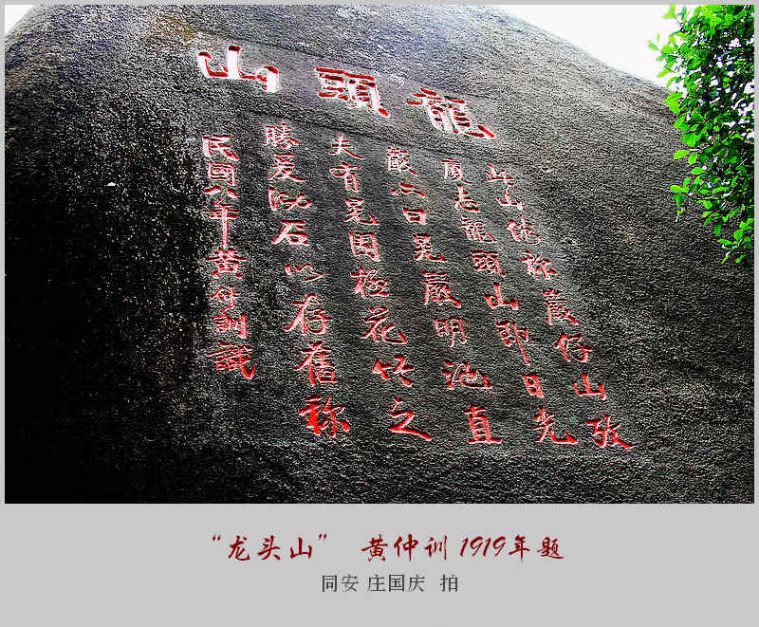 龍頭山
此山俗称巖仔山張
厦志龍頭山即日光
巖曰晃巖明池直
夫有晃園極花竹之
勝爰泐石以存舊称
民國八年黄仲訓識
“龙头山” 黄仲训 1919年题
同安 庄国庆 拍